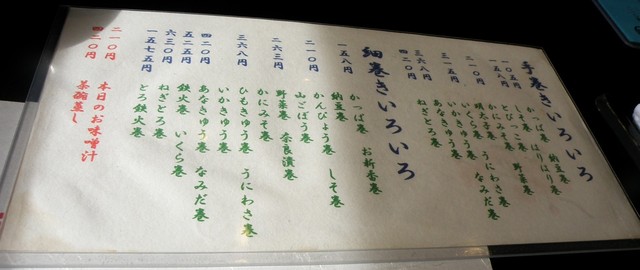 手巻きいろいろ
一〇五円
かっぱ巻 納豆巻
しそ巻 はりはり巻
一五八円
とびっこ巻 野菜巻
二一〇円
かにみそ巻
明太子巻 うにわさ巻
いくら巻 なみだ巻
三一五円
いかきゅう巻
あなきゅう巻
三六八円
ねぎとろ巻
四二〇円
細巻きいろいろ
一五八円
かっぱ巻 お新香巻
納豆巻
二一〇円
かんぴょう巻 しそ巻
山ごぼう巻
二六三円
野菜巻 奈良漬巻
かにみそ巻
三六八円
ひもきゅう巻 うにわさ巻
いかきゅう巻
四二〇円
あなきゅう巻 なみだ巻
五二五円
鉄火巻 いくら巻
六三〇円
ねぎとろ巻
一五七五円
とろ鉄火巻
二一〇円 本日のお味噌汁
四二〇円 茶碗蒸し